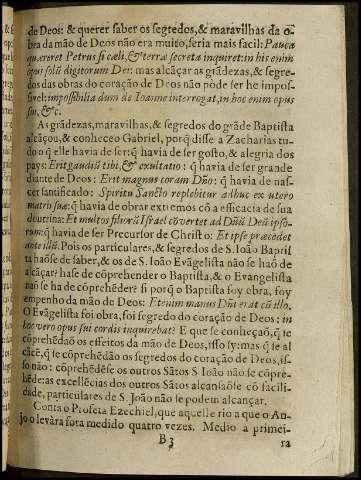 de Deos: & querer saber os segredos,& maravilhas da o-
bra da mão de Deos não era muito, seria mais facil: Pauca
quæreret Petrus si cæli,& terræ secreta inquiret: in his enim
opus solũ digitorum Dei: mas alcãçar as grãdezas,& segre-
dos das obras do coração de Deos não pòde ser he impos-
sivel: impossibilia dum de Ioanne interrogat, in hoc enim opus
suũ,&c.
As grãdezas, maravilhas,& segredos do grãde Baptista
alcãçou,& conheceo Gabriel, porq̃ disse a Zacharias tu-
do o q̃ elle havia de ser: q̃ havia de ser gosto,& alegria dos
pays: Erit gaudiũ tibi,& exultatio: q̃ havia de ser grande
diante de Deos: Erit magnus coram Dño: q̃ havia de nas-
cer santificado: Spiritu Sancto replebitur adhuc ex utero
matris suæ: q̃ havia de obrar extremos cõ a efficacia de sua
doutrina: Et multos filiorũ Israel cõvertet ad Dñũ Deũ ipso-
rum: q̃ havia de ser Precursor de Christo: Et ipse præcedet
ante illũ. Pois os particulares,& segredos de S. Ioão Baptis
ta haõse de saber,& os de S. Ioão Evãgelista não se haõ de
alcãçar? hase de cõprehender o Baptista,& o Evangelista
não se ha de cõprehẽder? si porq̃ o Baptista foy obra, foy
empenho da mão de Deos: Etenim manus Dñi erat cũ illo.
O Evãgelista foi obra, foi segredo do coração de Deos: in
hoc vero opus sui cordis inquirebat? E que se conheçaõ,q̃ se
cõprehẽdaõ os effeitos da mão de Deos, isso sy: mas q̃ se al
cãce,q̃ se cõprehẽdão os segredos do coração de Deos, is-
so não: cõprehẽdẽse os outros Sãtos S. Ioão não se cõpre-
hẽde: as excellẽcias dos outros Sãtos alcansaõse cõ facili-
dade, particulares de S. João não se podem alcançar.
Conta o Profeta Ezechiel, que aquelle rio a que o An-
jo o levàra fora medido quatro vezes. Medio a primei-
B 3
ra